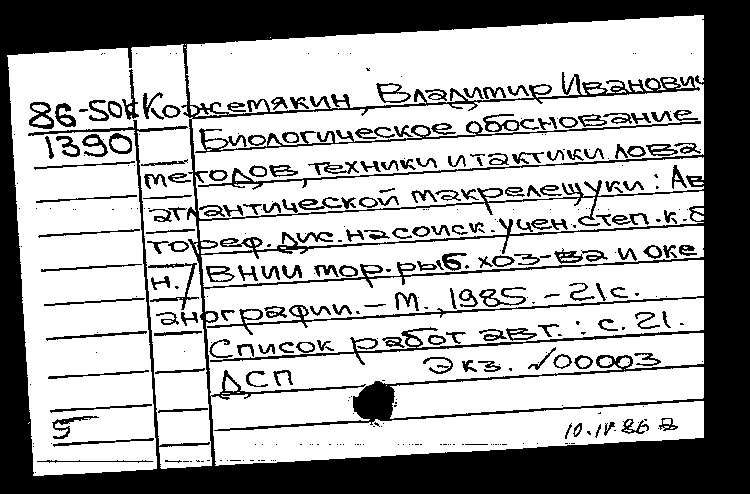 86-50к Кожемякин, Владимир Иванович
1390 Биологическое обоснование
методов, техники и тактики лова
атлантической макрелещуки: Ав
тореф. дис. на соиск. учен. степ. к. б
н. / ВНИИ мор. рыб. хоз-ва и оке
анографии. - М., 1985. - 21 с.
Список работ авт.: с. 21.
ДСП Экз. √00003
5
10.IV.86